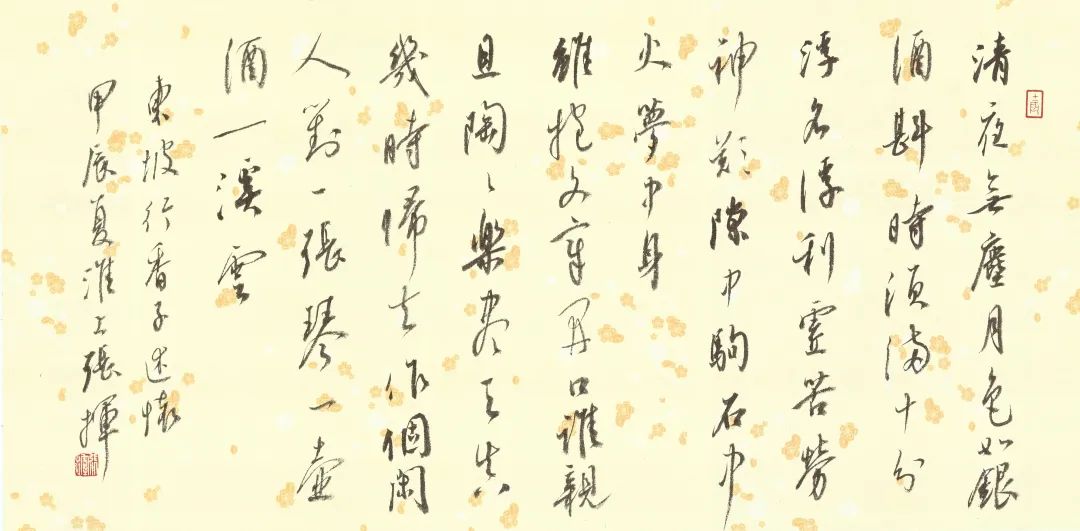 清夜無塵月色如銀
酒斟時須滿十分
浮名浮利虛苦勞
神歎隙中駒石中
火夢中身
雖抱文章開口誰親
且陶陶樂盡天真
幾時歸去作個閑
人對一張琴一壺
酒一溪雲
東坡行香子述懷
甲辰夏淮上張揮